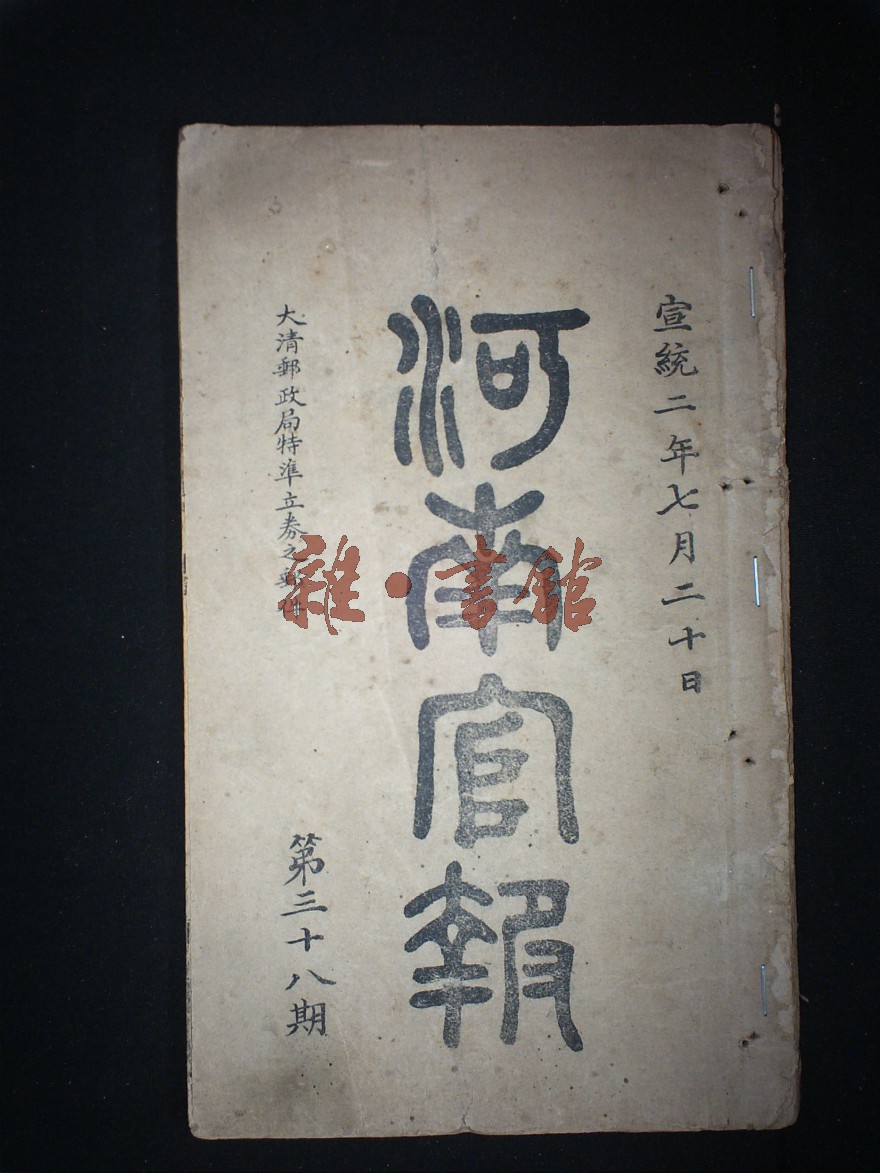 宣統二年七月二十日
河南官報
大清郵政局特準立券之郵件
第三十八期
雜·書館